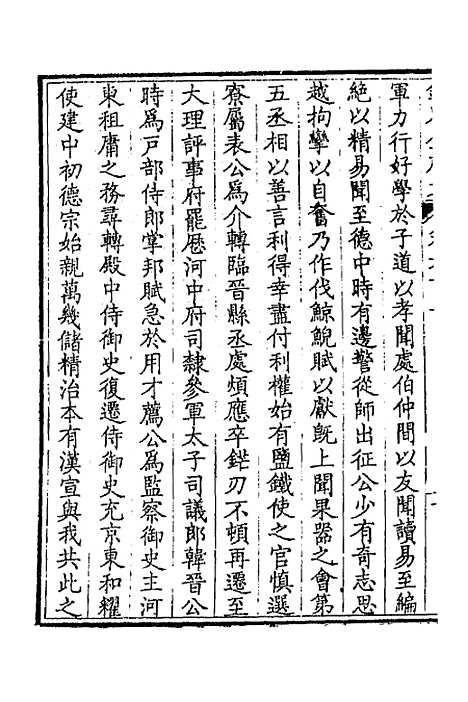 軍力行好學於子道以孝聞處伯仲間以友聞讀易至編
絶以精易聞至德中時有邊警從師出征公少有奇志思
越拘攣以自奮乃作伐鯨鯢賦以獻旣上聞果器之會第
五丞相以善言利得幸盡付利權始有鹽鐵使之官慎選
寮屬表公爲介轉臨晉縣丞處煩應卒鋩刃不頓再遷至
大理評事府罷歷河中府司隸參軍太子司議郎韓晉公
時爲戸部侍郎掌邦賦急於用才薦公爲監察御史主河
東租庸之務尋轉殿中侍御史復遷侍御史充京東和糴
使建中初德宗始親萬幾儲精治本有漢宣與我共此之